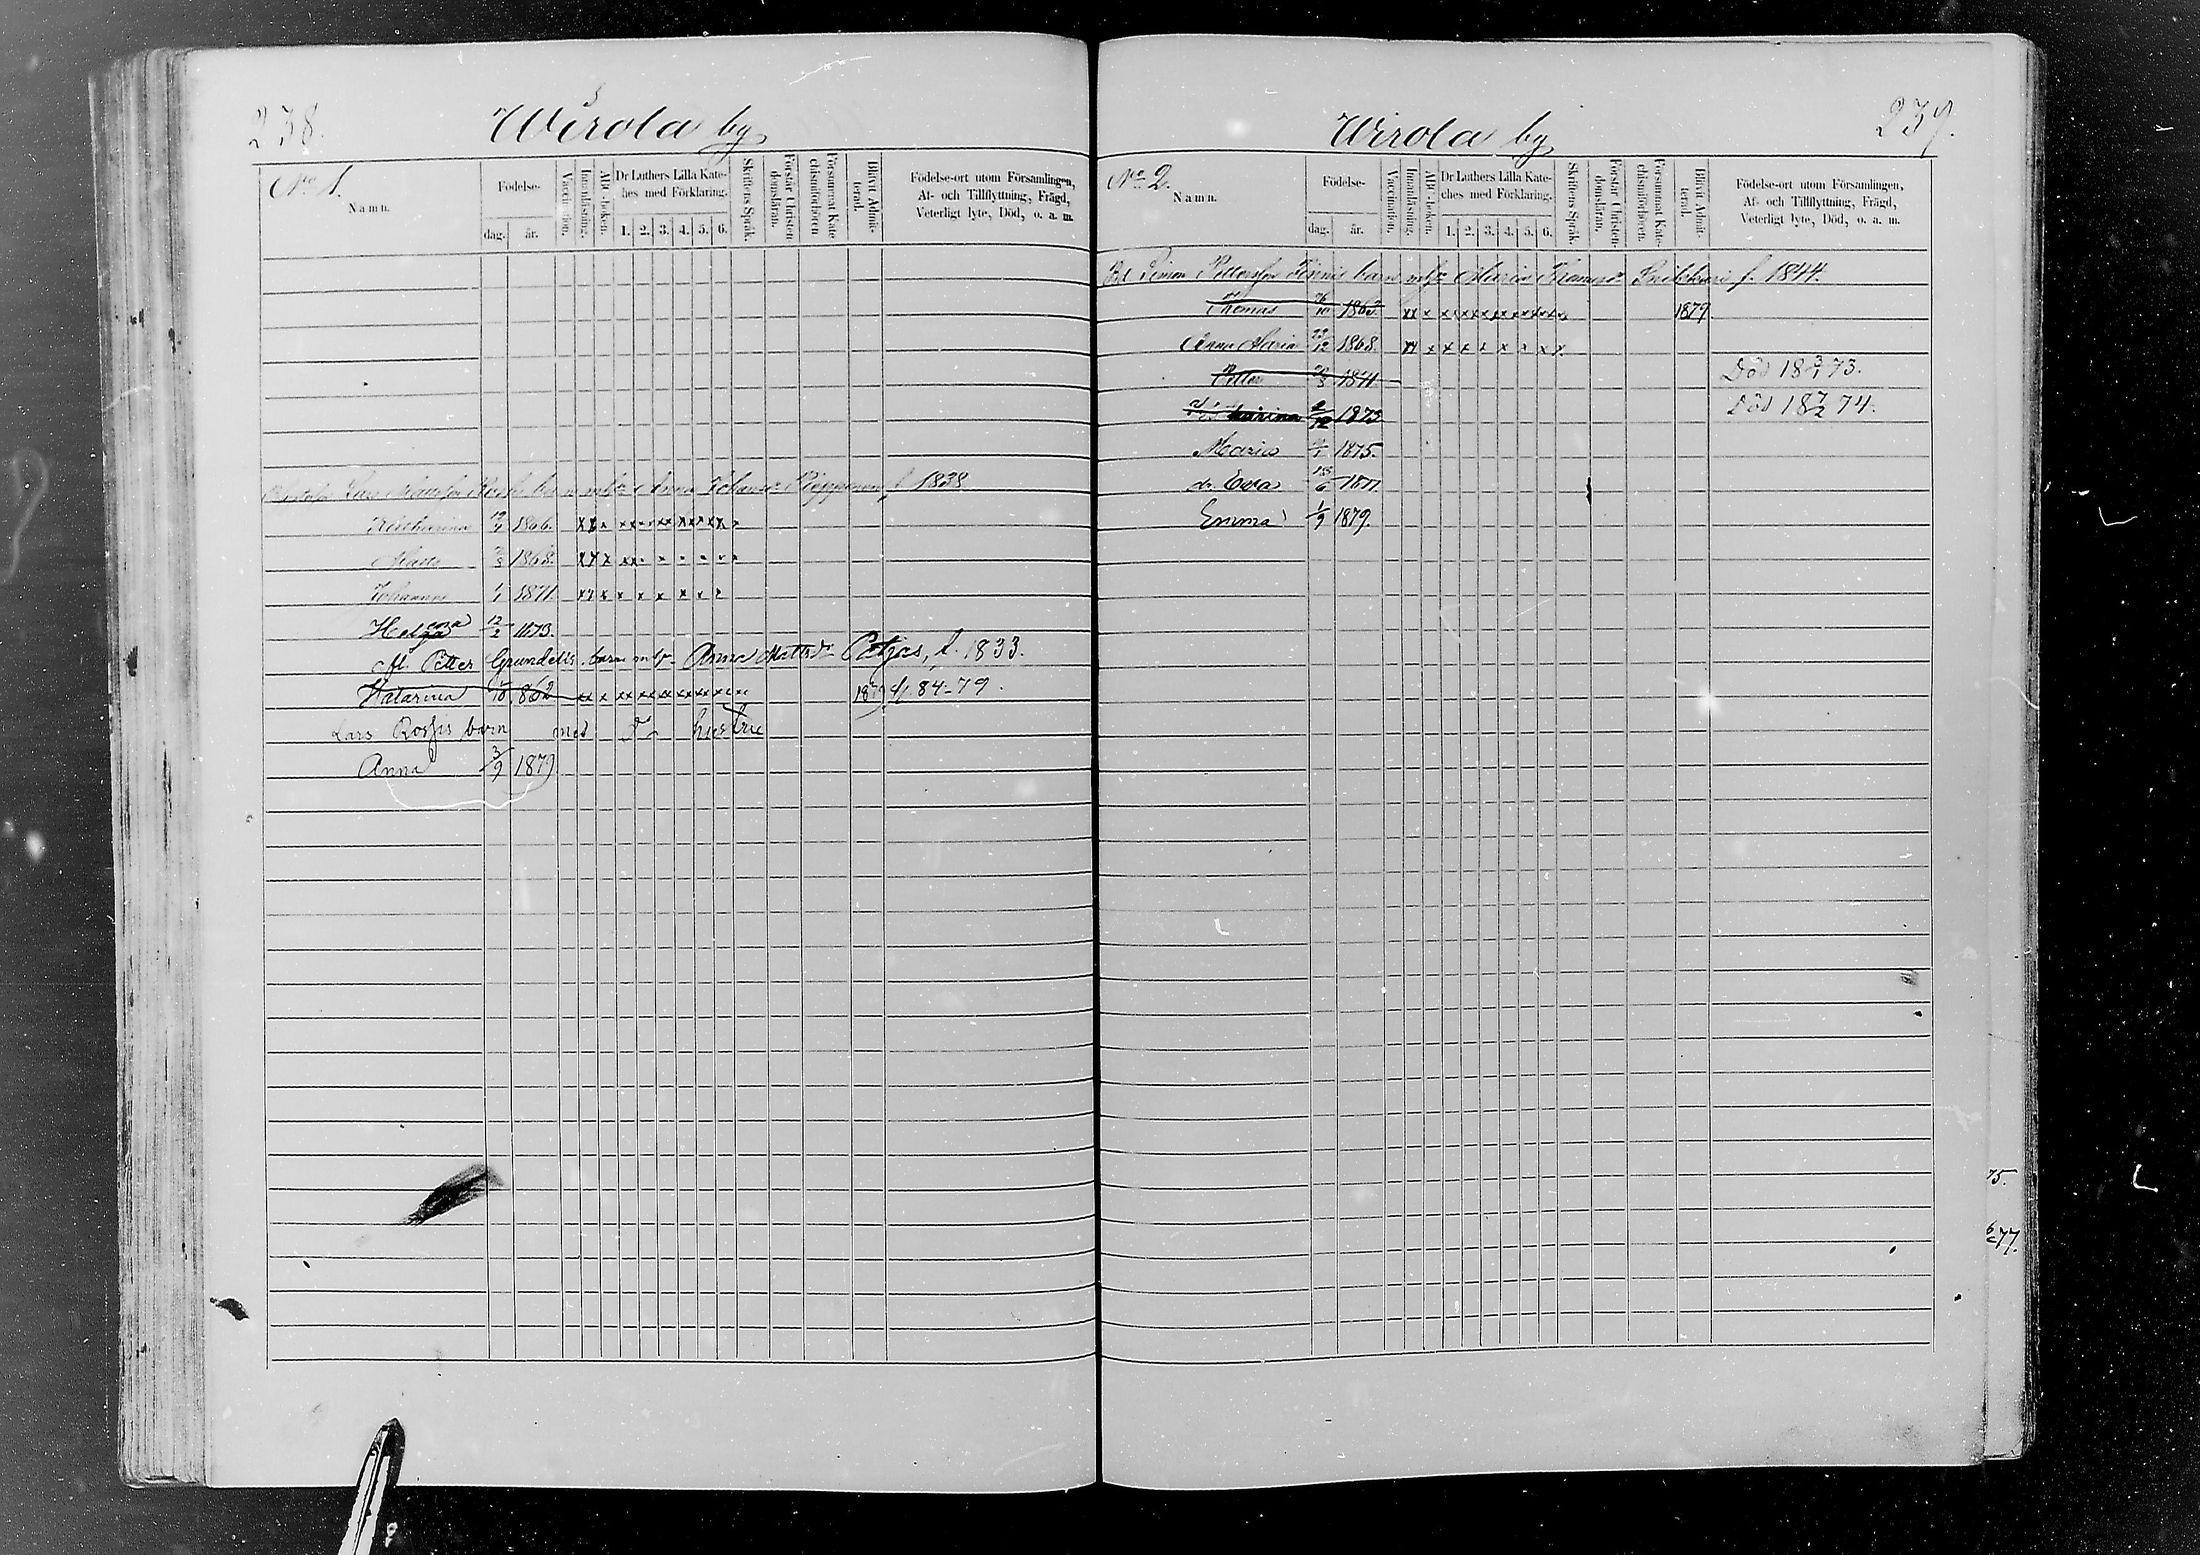 238.
Wirola by
No 1.
Namn.
Födelse-
dag.
år.
Vaccination.
Innanläsning.
ABC-boken.
Dr Luthers Lilla Kate-
ches med Förklaring.
1. 2. 3. 4. 5. 6.
Skriftens Språk.
Förstår Christen-
domsläran.
Försummat Kate-
chismiförhören.
Blivit Admit-
terad.
Födelse-ort utom Församlingen,
Af- och Tillflyttning, Frägd,
Veterligt lyte, Död, o. a. m.
Lars barn m h Anna f 1838
Katharina 1866. x x x x x x x x x x x
Matts 1868. x x x x x
Johannes 1/1 1871. x x x x x x x x x
Helena 12/2 1873.
Petter Grundelis barn m h Anna Mattsdr f. 1833.
Katarina 1862 xx x xx xx xx xx xx xx 1879 84-79.
Lars barn med hustru
Anna 3/9 1879
239.
Wirola by
No 2.
Namn.
Födelse-
dag.
år.
Vaccination.
Innanläsning.
ABC-boken.
Dr Luthers Lilla Kate-
ches med Förklaring.
1. 2. 3. 4. 5. 6.
Skriftens Språk.
Förstår Christen-
domsläran.
Försummat Kate-
chismiförhören.
Blivit Admit-
terad.
Födelse-ort utom Församlingen,
Af- och Tillflyttning, Frägd,
Veterligt lyte, Död, o. a. m.
Simon Pettersson barn m h Maria f. 1844.
Thomas 1863. xx x x xx xx xx xx xx 1879
Anna Maria 1868. xx x x x x x x x x
Petter 1871 Död 18 3/1 73.
1873 Död 18 7/2 74.
Maria 1875.
Eva 1877
Emma 1/9 1879.
75.
77.